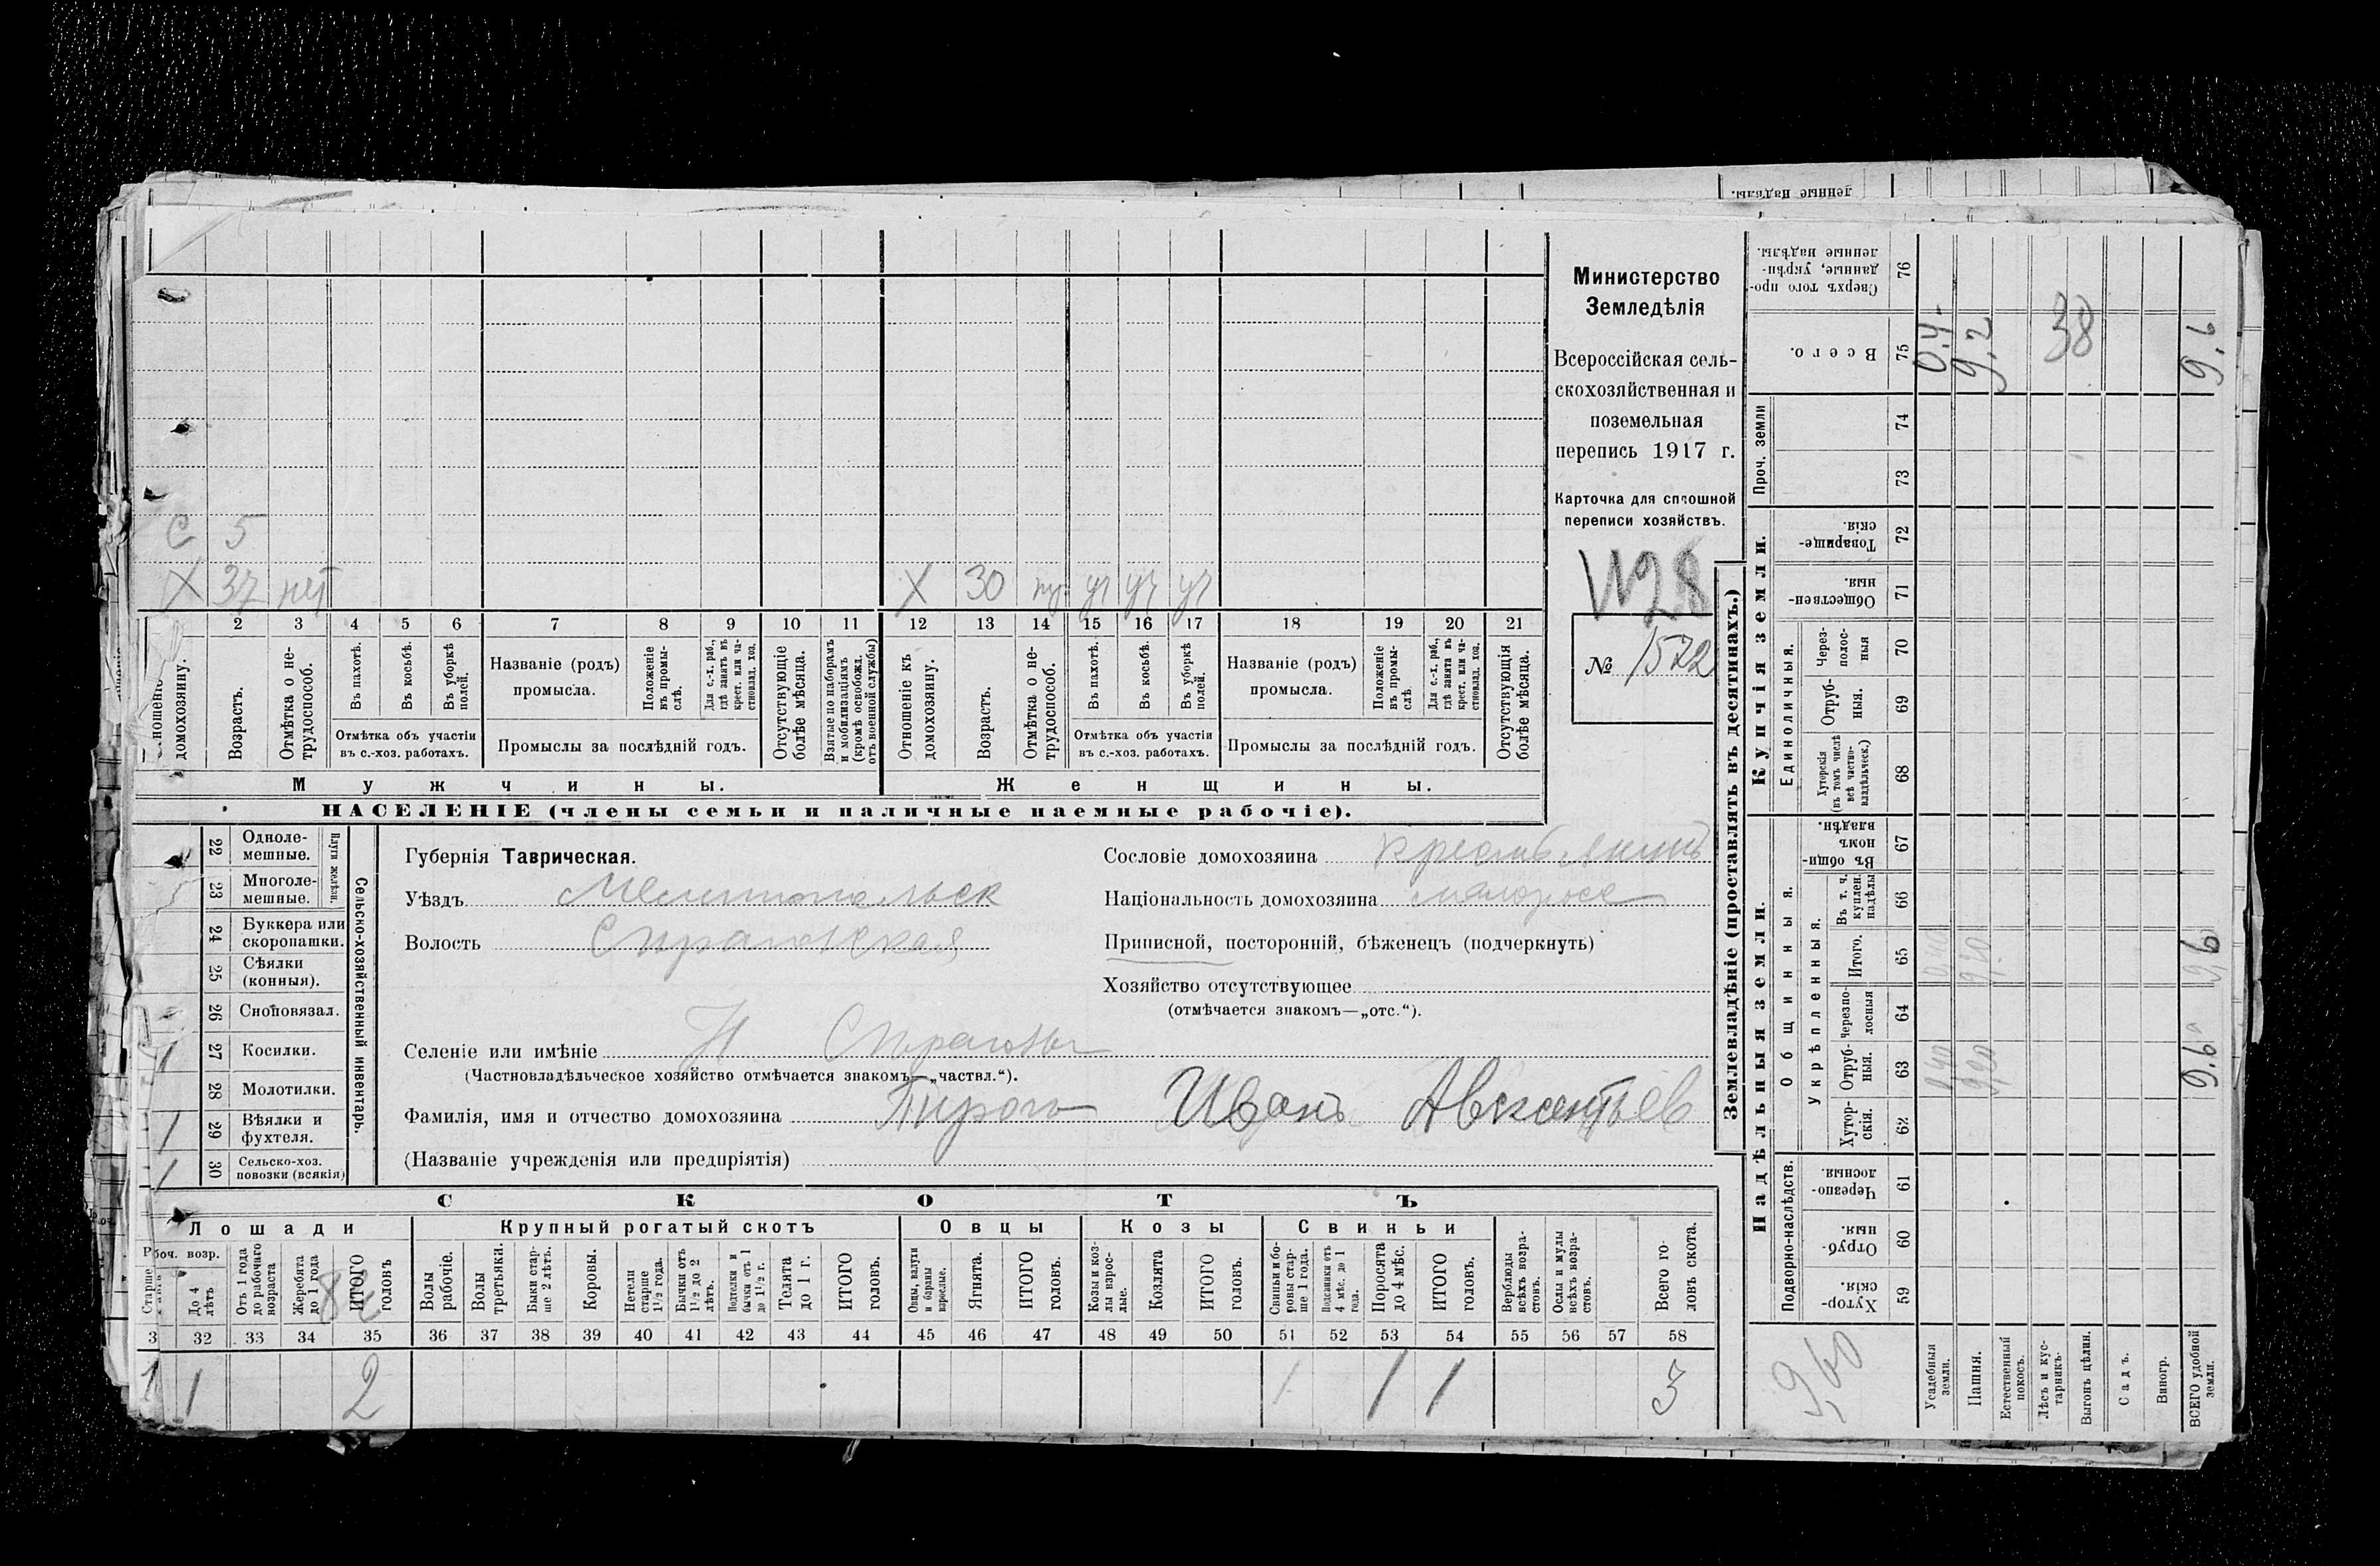 ленные надѣлы.
С 5
Х 37 нет Х 30 уч уч уч
2 3 4 5 6 7 8 9 10 11 12 13 14 15 16 17 18 19 20 21
домохозяину.
Возрастъ.
Отмѣтка о не-
трудоспособ.
Въ пахотѣ.
Въ косьбѣ.
Въ уборкѣ
полей.
Отмѣтка объ участіи
въ с.-хоз. работахъ.
Названіе (родъ)
промысла.
Положеніе
въ промы-
слѣ.
Для с.-х. раб.,
гдѣ занятъ въ
крест. или ча-
стновлад. хоз.
Промыслы за послѣдній годъ.
Отсутствующіе
болѣе мѣсяца.
Взятые по наборамъ
и мобилизаціямъ
(кромѣ освобожд.
отъ военной службы)
Отношеніе къ
домохозяину.
Возрастъ.
Отмѣтка о не-
трудоспособ.
Въ пахотѣ.
Въ косьбѣ.
Въ уборкѣ
полей.
Отмѣтка объ участіи
въ с.-хоз. работахъ.
Названіе (родъ)
промысла.
Положеніе
въ промы-
слѣ.
Для с.-х. раб.,
гдѣ занята въ
крест. или ча-
стновлад. хоз.
Промыслы за послѣдній годъ.
Отсутствующія
болѣе мѣсяца.
Мужчины. Женщины.
НАСЕЛЕНІЕ (члены семьи и наличные наемные рабочіе).
Министерство
Земледѣлія
Всероссійская сель-
скохозяйственная и
поземельная
перепись 1917 г.
Карточка для сплошной
переписи хозяйствъ.
N28
№ 1522
22 Одноле-
мешные.
23 Многоле-
мешные.
Плуги желѣзн.
24 Буккера или
скоропашки.
25 Сѣялки
(конныя).
26 Сноповязал.
1 27 Косилки.
28 Молотилки.
1 29 Вѣялки и
фухтеля.
1 30 Сельско-хоз.
повозки (всякія)
Сельско-хозяйственный инвентарь.
Губернія Таврическая.
Уѣздъ Мелитопольск
Волость
Сословіе домохозяина крестьянинъ
Національность домохозяина малоросс
Приписной, посторонній, бѣженецъ (подчеркнуть)
Хозяйство отсутствующее
(отмѣчается знакомъ—„отс.“).
Селеніе или имѣніе Н
(Частновладѣльческое хозяйство отмѣчается знакомъ—„частвл.“).
Фамилія, имя и отчество домохозяина Пирогъ Иванъ Авксентьев
(Названіе учрежденія или предпріятія)
СКОТЪ
Лошади Крупный рогатый скотъ Овцы Козы Свиньи
Старше
До 4
лѣтъ
Отъ 1 года
до рабочаго
возраста
Жеребята
до 1 года
ИТОГО
головъ
Волы
рабочіе.
Волы
третьяки.
Быки стар-
ше 2 лѣтъ.
Коровы.
Нетели
старше
1½ года.
Бычки отъ
1½ до 2
лѣтъ.
Подтелки и
бычки отъ 1
до 1½ г.
Телята
до 1 г.
ИТОГО
головъ.
Овцы, валухи
и бараны
взрослые.
Ягнята.
ИТОГО
головъ.
Козы и коз-
лы взрос-
лые.
Козлята
ИТОГО
головъ.
Свиньи и бо-
ровы стар-
ше 1 года.
Подсвинки отъ
4 мѣс. до 1
года.
Поросята
до 4 мѣс.
ИТОГО
головъ.
Верблюды
всѣхъ возра-
стовъ.
Ослы и мулы
всѣхъ возра-
стовъ.
Всего го-
ловъ скота.
3 32 33 34 35 36 37 38 39 40 41 42 43 44 45 46 47 48 49 50 51 52 53 54 55 56 57 58
1 1 2 1 1 1 3
Землевладѣніе (проставлять въ десятинахъ.)
Купчія земли.
Сверхъ того про-
данные, укрѣп-
ленные надѣлы. 76
Всего. 75 0,4 9,2 38 9,6
Проч. земли 74
73
Товарище-
скія. 72
Обществен-
ныя. 71
Единоличныя.
Через-
полос-
ныя 70
Отруб-
ныя. 69
Хуторскія
(въ томъ числѣ
всѣ частно-
владѣльческ.) 68
Надѣльныя земли.
Общинныя.
Въ общи-
номъ
владѣн. 67
Укрѣпленныя.
Въ т. ч.
куплен.
надѣлы 66
Итого. 65 0,40 9,20 9,6
Черезпо-
лосныя 64
Отруб-
ныя. 63 0,40 9,20 9,6
Хутор-
скія. 62
Подворно-наслѣдств.
Черезпо-
лосныя. 61
Отруб-
ныя. 60
Хутор-
скія. 59
9,60
Усадебныя
земли.
Пашня.
Естественный
покосъ.
Лѣсъ и кус-
тарникъ.
Выгонъ цѣлин.
Садъ.
Виногр.
ВСЕГО удобной
земли.